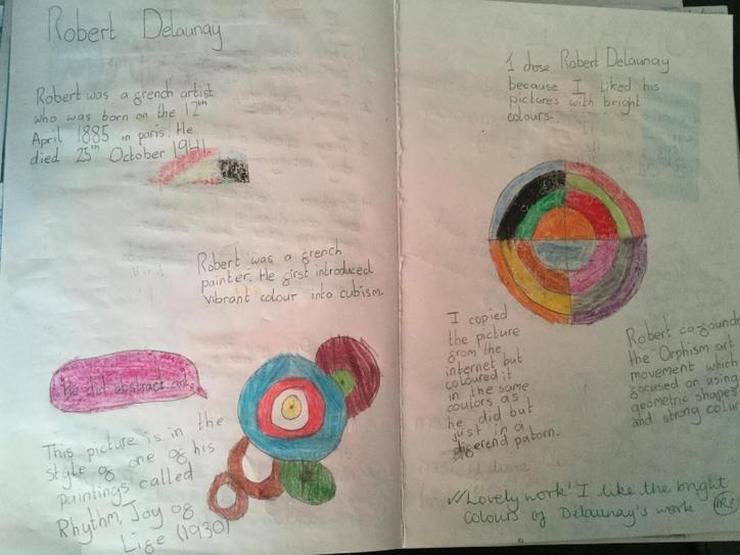 Robert Delaunay
Robert was a french artist
who was born on the 12th
April 1885 in paris. He
died 25th October 1941.
Robert was a french
painter. He first introduced
vibrant colour into cubism.
He did abstract art.
This picture is in the
style of one of his
paintings called
Rhythm, Joy of
Life (1930)
I chose Robert Delaunay
because I liked his
pictures with bright
colours.
I copied
the picture
from the
internet but
coloured it
in the same
coulors as
he did but
just in a
diferend patorn.
Robert co-founde
the Orphism art
movement which
focused on using
geometric shapes
and strong colur
✓✓ Lovely work! I like the bright
colours of Delaunay's work